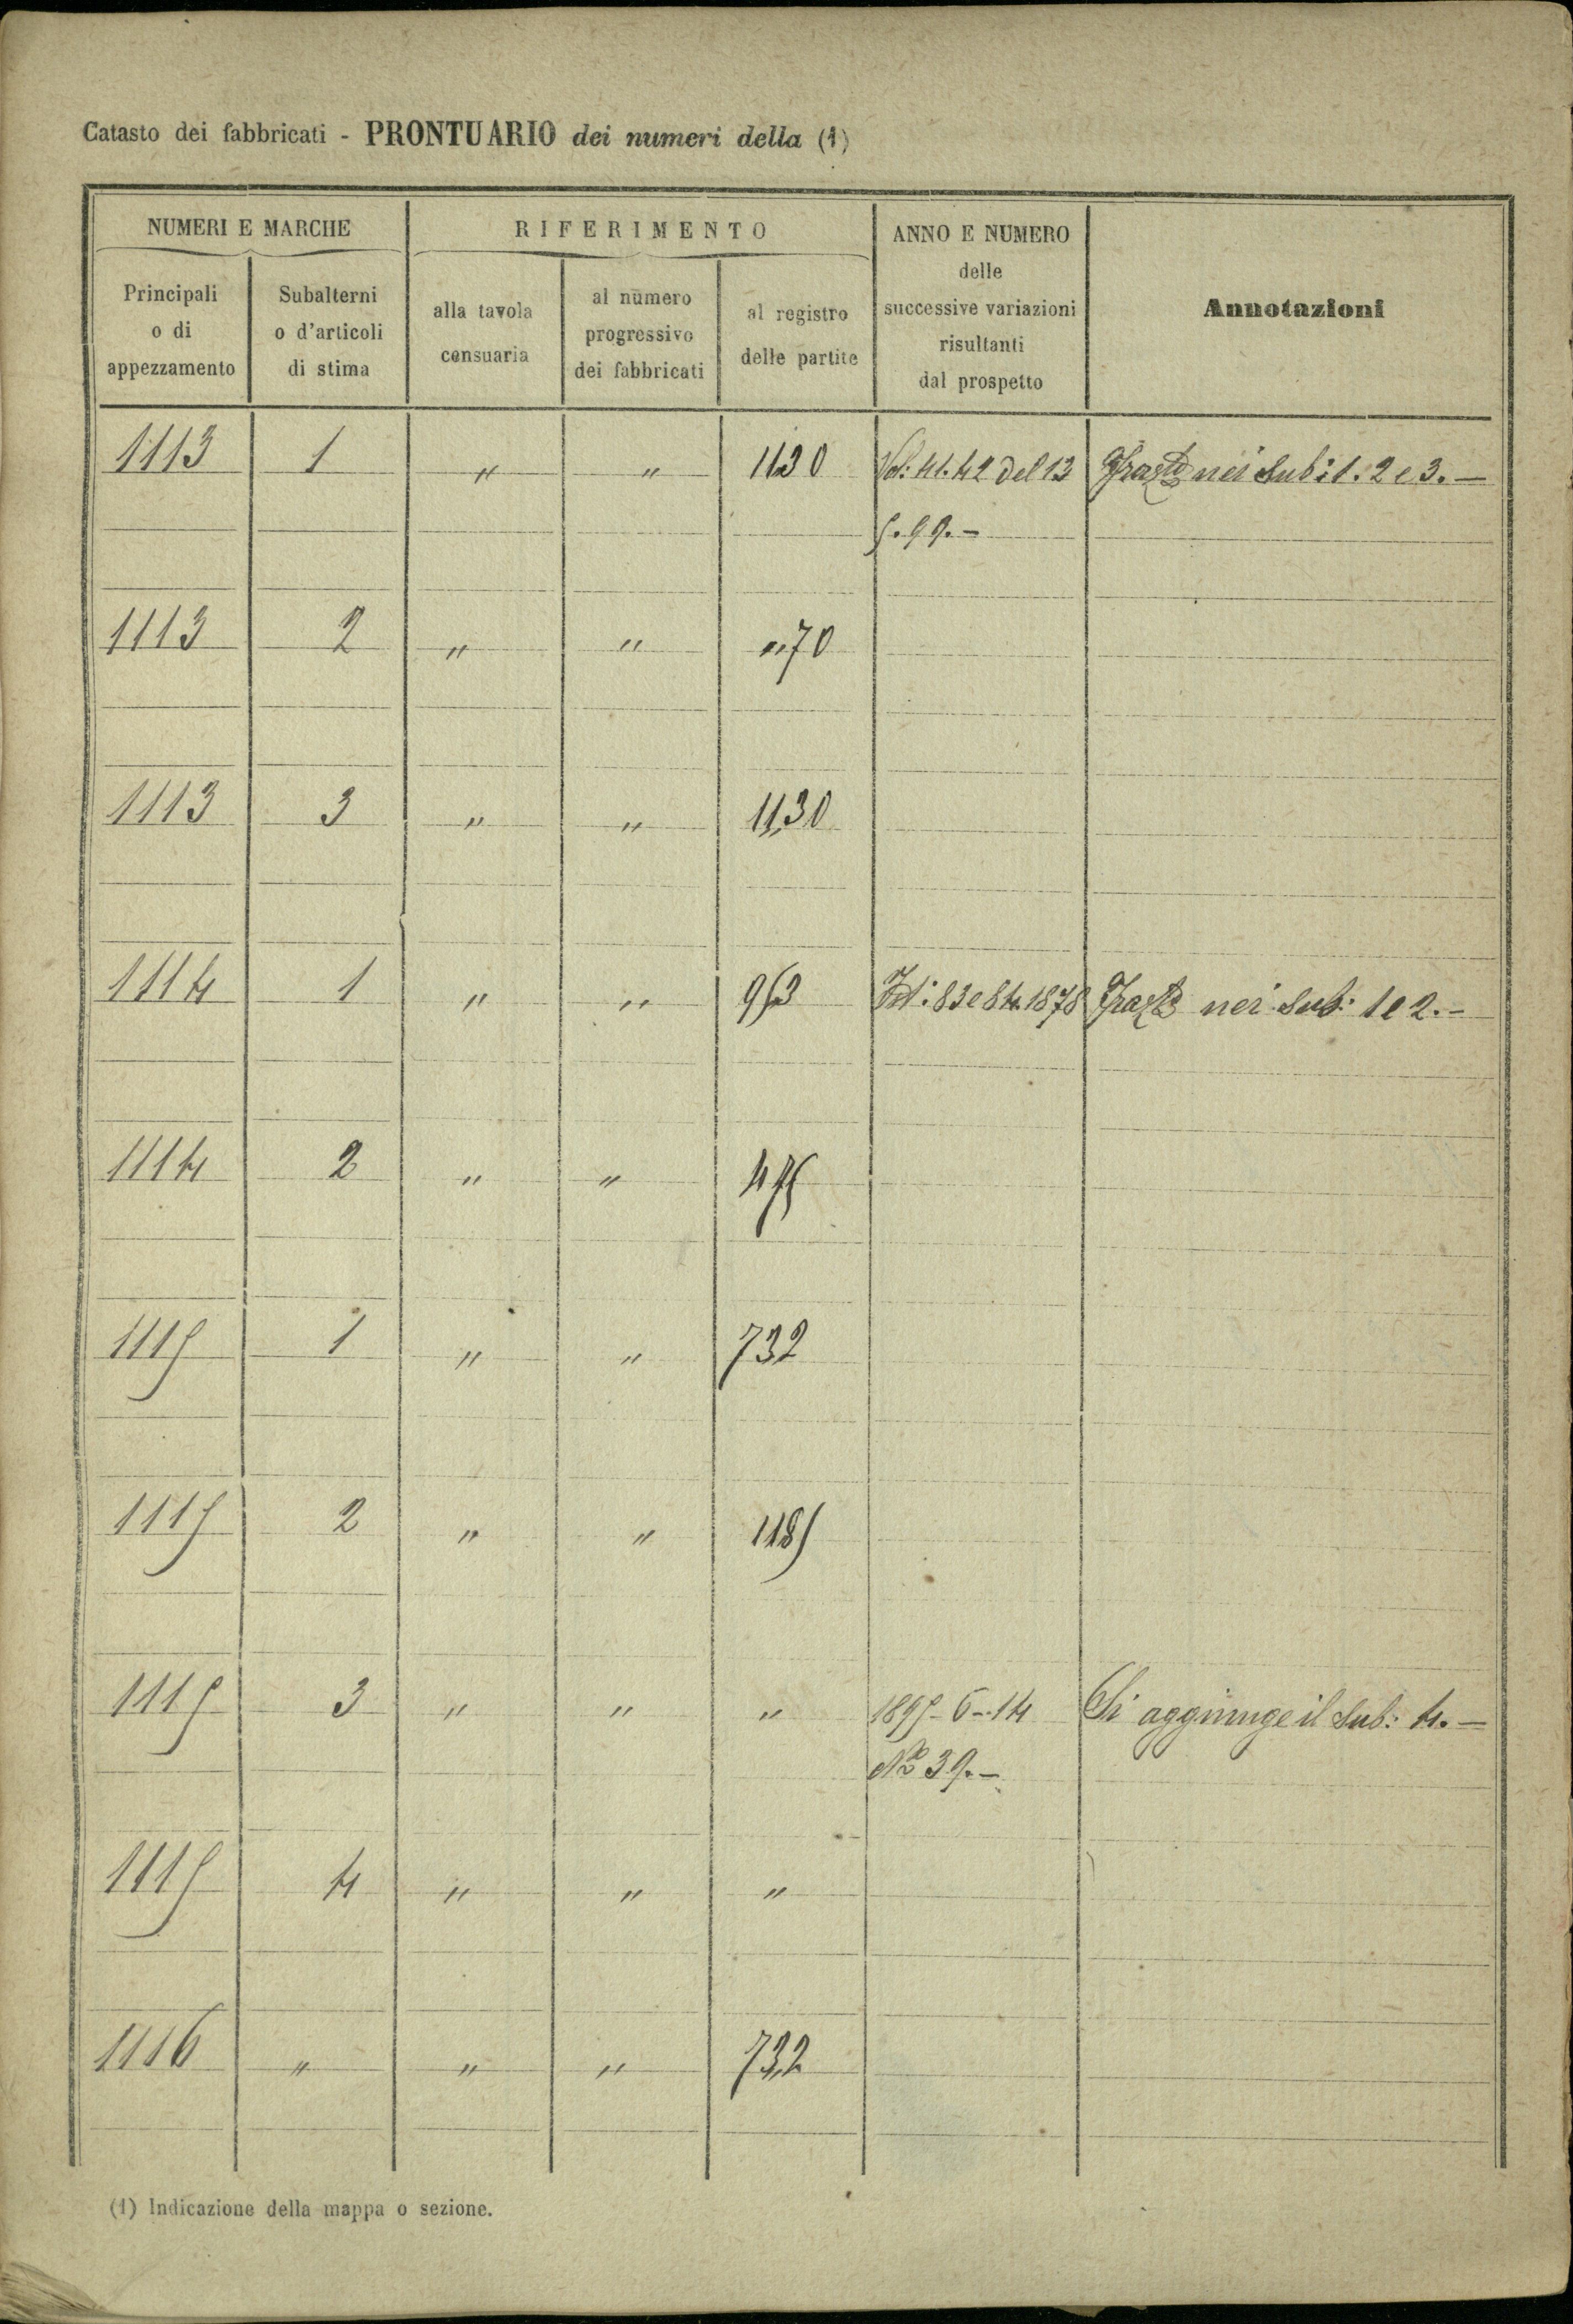 Catasto dei fabbricati - PRONTUARIO dei numeri della (1)
NUMERI E MARCHE
RIFERIMENTO
ANNO E NUMERO
delle
successive variazioni
risultanti
dal prospetto
Annotazioni
Principali
o di
appezzamento
Subalterni
o d'articoli
di stima
alla tavola
censuaria
al numero
progressivo
dei fabbricati
al registro
delle partite
1113 1 " " 1130 41.42 del 13 Frazto nei sub: 1. 2 e 3. —
5.99.-
1113 2 " " "70
1113 3 " " 1130
1114 1 " " 953 83 e 84.1878 Frazto nei sub: 1 e 2.-
1114 2 " " 475
1115 1 " " 732
1115 2 " " 1185
1115 3 " " " 1895-6-14 Si aggiunge il sub: 4.—
No 39.-
1115 4 " " "
1116 " " " 732
(1) Indicazione della mappa o sezione.